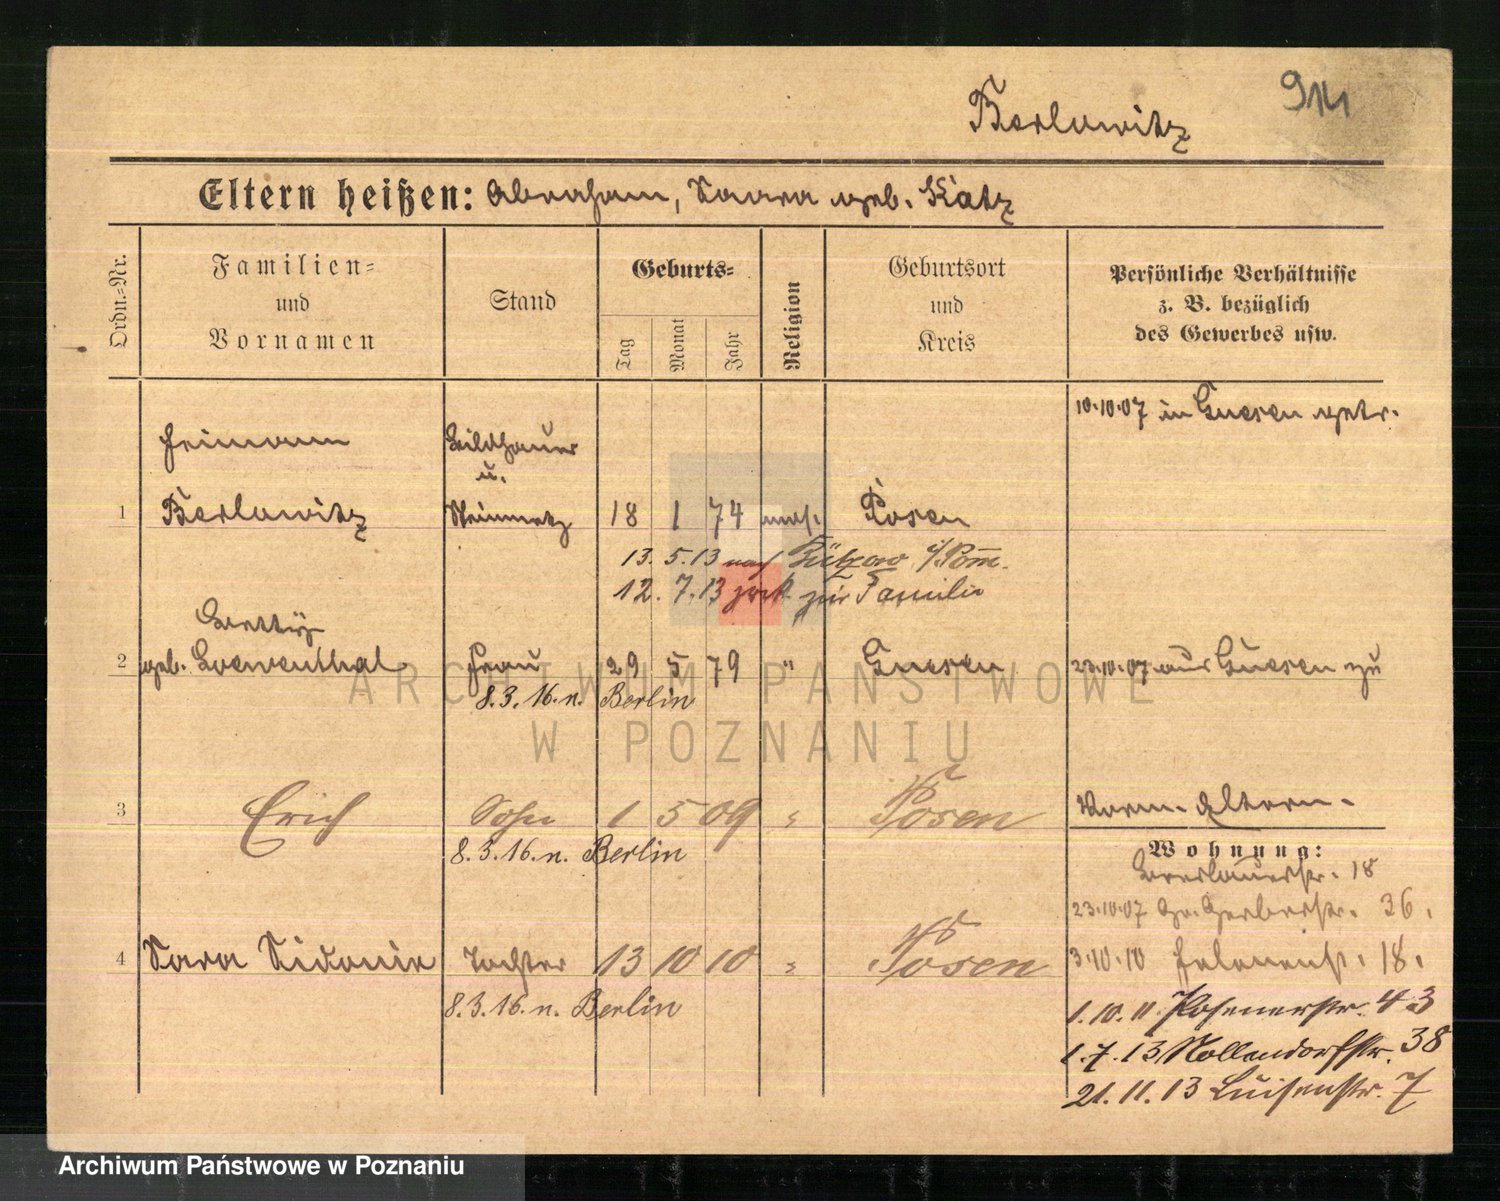 Berlowitz
Eltern heißen: Abraham, Saara geb. Katz
Ordn.-Nr.
Familien-
und
Vornamen
Stand
Geburts-
Tag
Monat
Jahr
Religion
Geburtsort
und
Kreis
Persönliche Verhältnisse
z. B. bezüglich
des Gewerbes usw.
10.10.07 in Gnesen getr.
Heimann
Bildhauer
u.
1 Berlowitz Steinmetz 18 1 74 mos. Posen
13. 5. 13 nach Gützow i/Pom.
12. 7. 13 zrck. zur Familie
Betty
2 geb. Loewenthal Frau 29 5 79 " Gnesen 23.10.07 aus Gnesen zu
8. 3. 16. n. Berlin
3 Erich Sohn 1 5 09 " Posen Vorm. Eltern.
8. 3. 16. n. Berlin
Wohnung:
Breslauerstr. 18
23.10.07 Gr. Gerberstr. 36.
4 Sara Sidonie Tochter 13 10 10 " Posen 3.10.10 18.
8. 3. 16. n. Berlin
1. 10. 11 Posenerstr. 43
1. 7. 13 Nollendorfstr. 38
21. 11. 13 Luisenstr. 7
ARCHIWUM PAŃSTWOWE
W POZNANIU
Archiwum Państwowe w Poznaniu